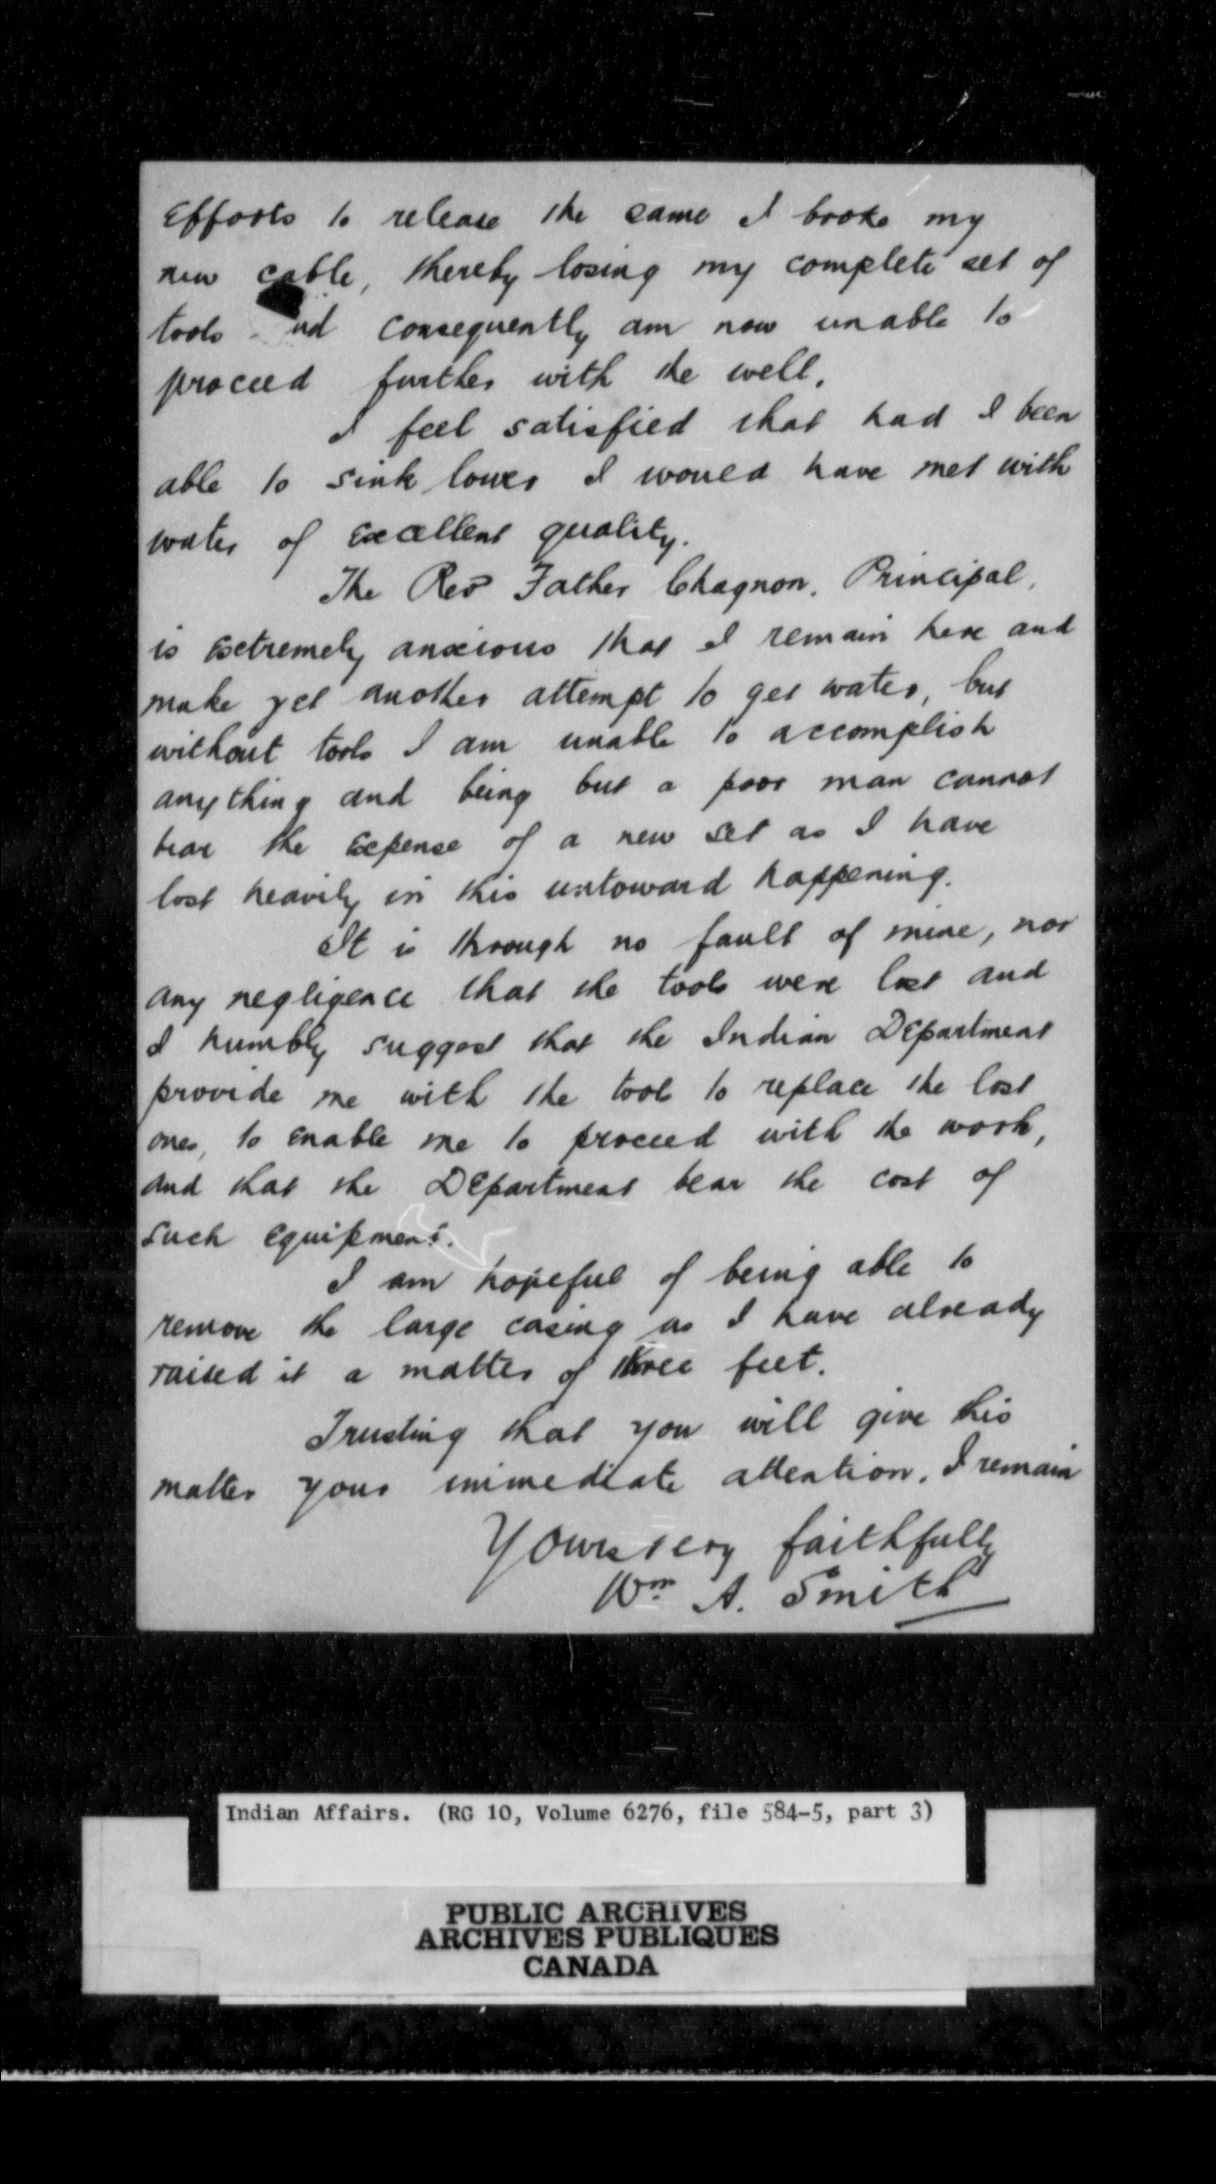 Efforts to release the same I broke my
new cable, thereby losing my complete set of
tools and consequently am now unable to
proceed further with the well.
I feel satisfied that had I been
able to sink lower I would have met with
water of excellent quality.
The Rev^d Father Chagnon, Principal,
is extremely anxious that I remain here and
make yet another attempt to get water, but
without tools I am unable to accomplish
anything and being but a poor man cannot
bear the expense of a new set as I have
lost heavily in this untoward happening.
It is through no fault of mine, nor
any negligence that the tools were lost and
I humbly suggest that the Indian Department
provide me with the tools to replace the lost
ones, to enable me to proceed with the work,
and that the Department bear the cost of
such equipment.
I am hopeful of being able to
remove the large casing as I have already
raised it a matter of three feet.
Trusting that you will give this
matter your immediate attention, I remain
Yours very faithfully
Wm A. Smith
Indian Affairs. (RG 10, Volume 6276, file 584-5, part 3)
PUBLIC ARCHIVES
ARCHIVES PUBLIQUES
CANADA